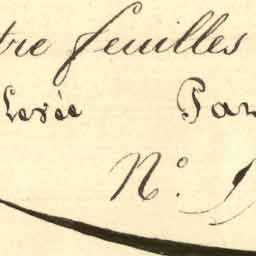 tre feuilles
Levée Par
N°. 1